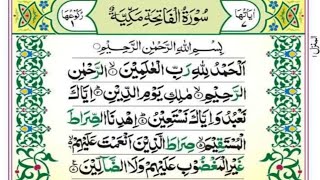 اٰيَاتُهَا ٧
سُوْرَةُ الْفَاتِحَةِ مَكِّيَّةٌ
رُكُوْعُهَا ١
بِسْمِ اللّٰهِ الرَّحْمٰنِ الرَّحِيْمِ
اَلْحَمْدُ لِلّٰهِ رَبِّ الْعٰلَمِيْنَ ۙ‏ الرَّحْمٰنِ
الرَّحِيْمِ ۙ‏ مٰلِكِ يَوْمِ الدِّيْنِ ؕ‏ اِيَّاكَ
نَعْبُدُ وَاِيَّاكَ نَسْتَعِيْنُ ؕ‏ اِهْدِنَا الصِّرَاطَ
الْمُسْتَقِيْمَ ۙ‏ صِرَاطَ الَّذِيْنَ اَنْعَمْتَ عَلَيْهِمْ
غَيْرِ الْمَغْضُوْبِ عَلَيْهِمْ وَلَا الضَّآلِّيْنَ